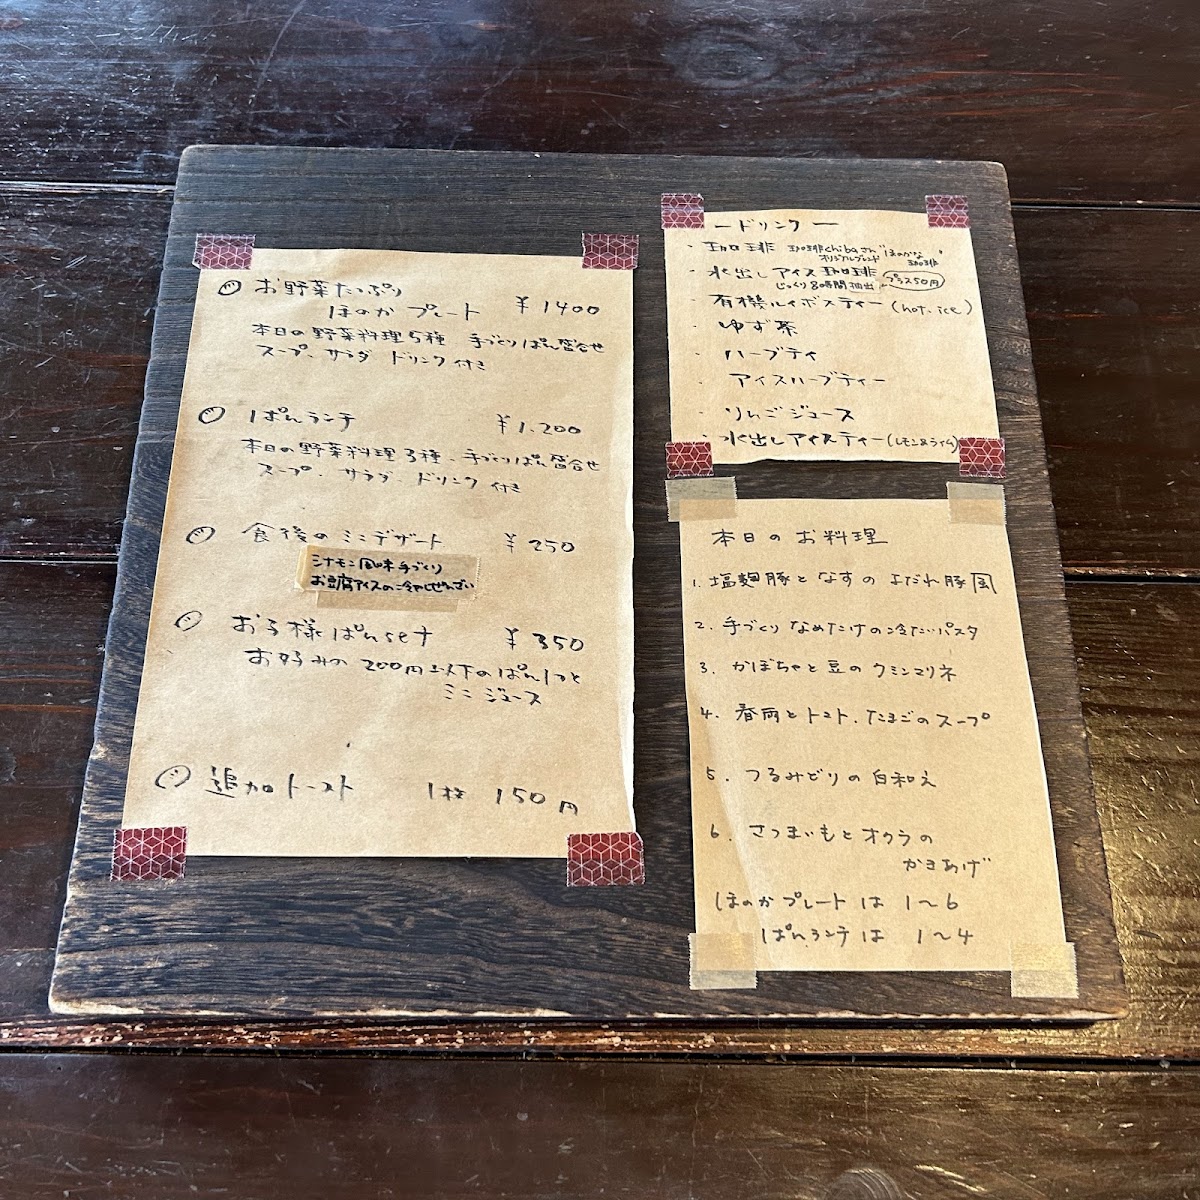 お野菜たっぷり
ほのかプレート ¥1400
本日の野菜料理5種 手づくりぱん盛合せ
スープ、サラダ ドリンク付き
ぱんランチ ¥1.200
本日の野菜料理3種、手づくりぱん盛合せ
スープ、サラダ、ドリンク付き
食後のミニデザート ¥250
シナモン風味手づくり
お豆腐アイスの冷やしぜんざい
お子様ぱんset ¥350
お好みの200円以下のぱん1つと
ミニジュース
追加トースト 1枚 150円
ードリンクー
・珈琲 珈琲chibaさん"ほのかな
オリジナルブレンド 珈琲"
・水出しアイス珈琲
じっくり8時間抽出 プラス50円
・有機ルイボスティー(hot.ice)
・ゆず茶
・ハーブティ
・アイスハーブティー
・りんごジュース
・水出しアイスティー(レモン&ライム)
本日のお料理
1. 塩麹豚となすのよだれ豚風
2. 手づくりなめたけの冷たいパスタ
3. かぼちゃと豆のクミンマリネ
4. 春雨とトマト、たまごのスープ
5. つるみどりの白和え
6. さつまいもとオクラの
かきあげ
ほのかプレートは 1〜6
ぱんランチは 1〜4